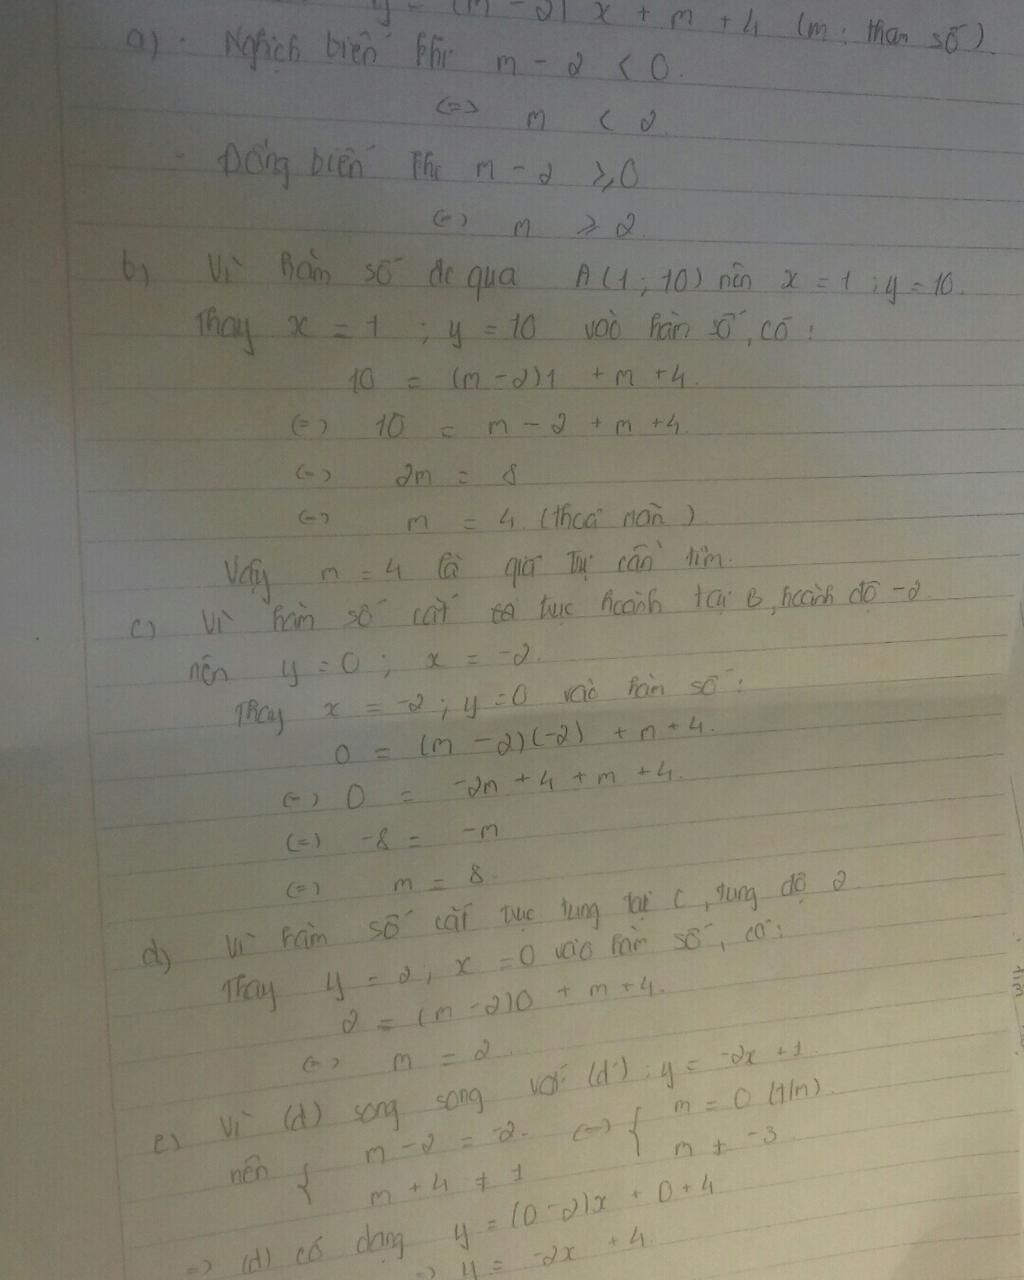 y = (m - 2) x + m + 4 (m: tham số)
a). Nghịch biến khi m - 2 < 0.
<=> m < 2
- Đồng biến khi m - 2 ≥ 0
<=> m ≥ 2
b) Vì hàm số đi qua A(1; 10) nên x = 1; y = 10.
Thay x = 1; y = 10 vào hàm số, có:
10 = (m - 2)1 + m + 4.
<=> 10 = m - 2 + m + 4.
<=> 2m = 8
<=> m = 4 (thoả mãn)
Vậy m = 4 là giá trị cần tìm.
c) Vì hàm số cắt trục hoành tại B, hoành độ -2
nên y = 0; x = -2.
Thay x = -2; y = 0 vào hàm số:
0 = (m - 2)(-2) + m + 4.
<=> 0 = -2m + 4 + m + 4.
<=> -8 = -m
<=> m = 8.
d) Vì hàm số cắt trục tung tại C, tung độ 2
Thay y = 2; x = 0 vào hàm số, có:
2 = (m - 2)0 + m + 4.
<=> m = 2
e) Vì (d) song song với (d'): y = -2x + 1
nên { m - 2 = -2. <=> { m = 0 (t/m)
m + 4 ≠ 1 m ≠ -3
=> (d) có dạng y = (0 - 2)x + 0 + 4
=> y = -2x + 4